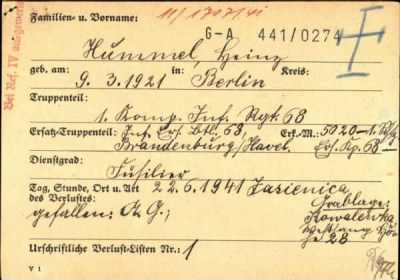 Familien- u. Vorname:
G-A 441/0274
Hummel, Heinz
geb. am: in: Kreis:
9. 3. 1921 Berlin
Truppenteil:
1. Komp. Inf. Rgt. 68
Ersatz-Truppenteil: Inf. Ers. Btl. 68, Erk.-M.: 5020-1.
Brandenburg/Havel. Ers. Kp. 68
Dienstgrad:
Füsilier
Tag, Stunde, Ort u. Art des Verlustes: 22.6.1941 Jasienica
gefallen: A. G.; Grablage:
Kowalewka
28
Urschriftliche Verlust-Listen Nr.: 1
V 1
Bei Ref. IV ausgewertet